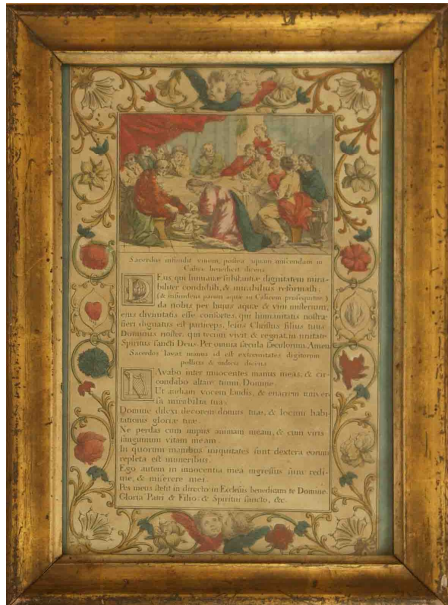 Sacerdos infundit vinum, postea aquam miscendam in
Calice benedicit dicens.
Deus, qui humanæ substantiæ dignitatem mira-
biliter condidisti, & mirabilius reformasti:
(& infundens parum aquæ in Calicem prosequitur)
da nobis per hujus aquæ & vini misterium,
ejus divinitatis esse consortes, qui humanitatis nostræ
fieri dignatus est particeps, Jesus Christus filius tuus
Dominus noster, qui tecum vivit & regnat, in unitate
Spiritus sancti Deus. Per omnia sæcula sæculorum. Amen
Sacerdos lavat manus id est extremitates digitorum
pollicis & indicis dicens
Lavabo inter innocentes manus meas, & cir-
cumdabo altare tuum, Domine.
Ut audiam vocem laudis, & enarrem univer-
sa mirabilia tua.
Domine dilexi decorem domus tuæ, & locum habi
tationis gloriæ tuæ.
Ne perdas cum impiis animam meam, & cum viris
sanguinum vitam meam.
In quorum manibus iniquitates sunt dextera eorum
repleta est muneribus.
Ego autem in innocentia mea ingressus sum redi-
me, & miserere mei.
Pes meus stetit in directo in Ecclesiis benedicam te Domine.
Gloria Patri & Filio, & Spiritui sancto, &c.